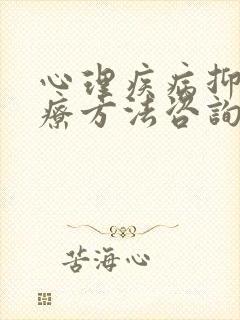 心理疾病抑
療方法咨詢
苦海心